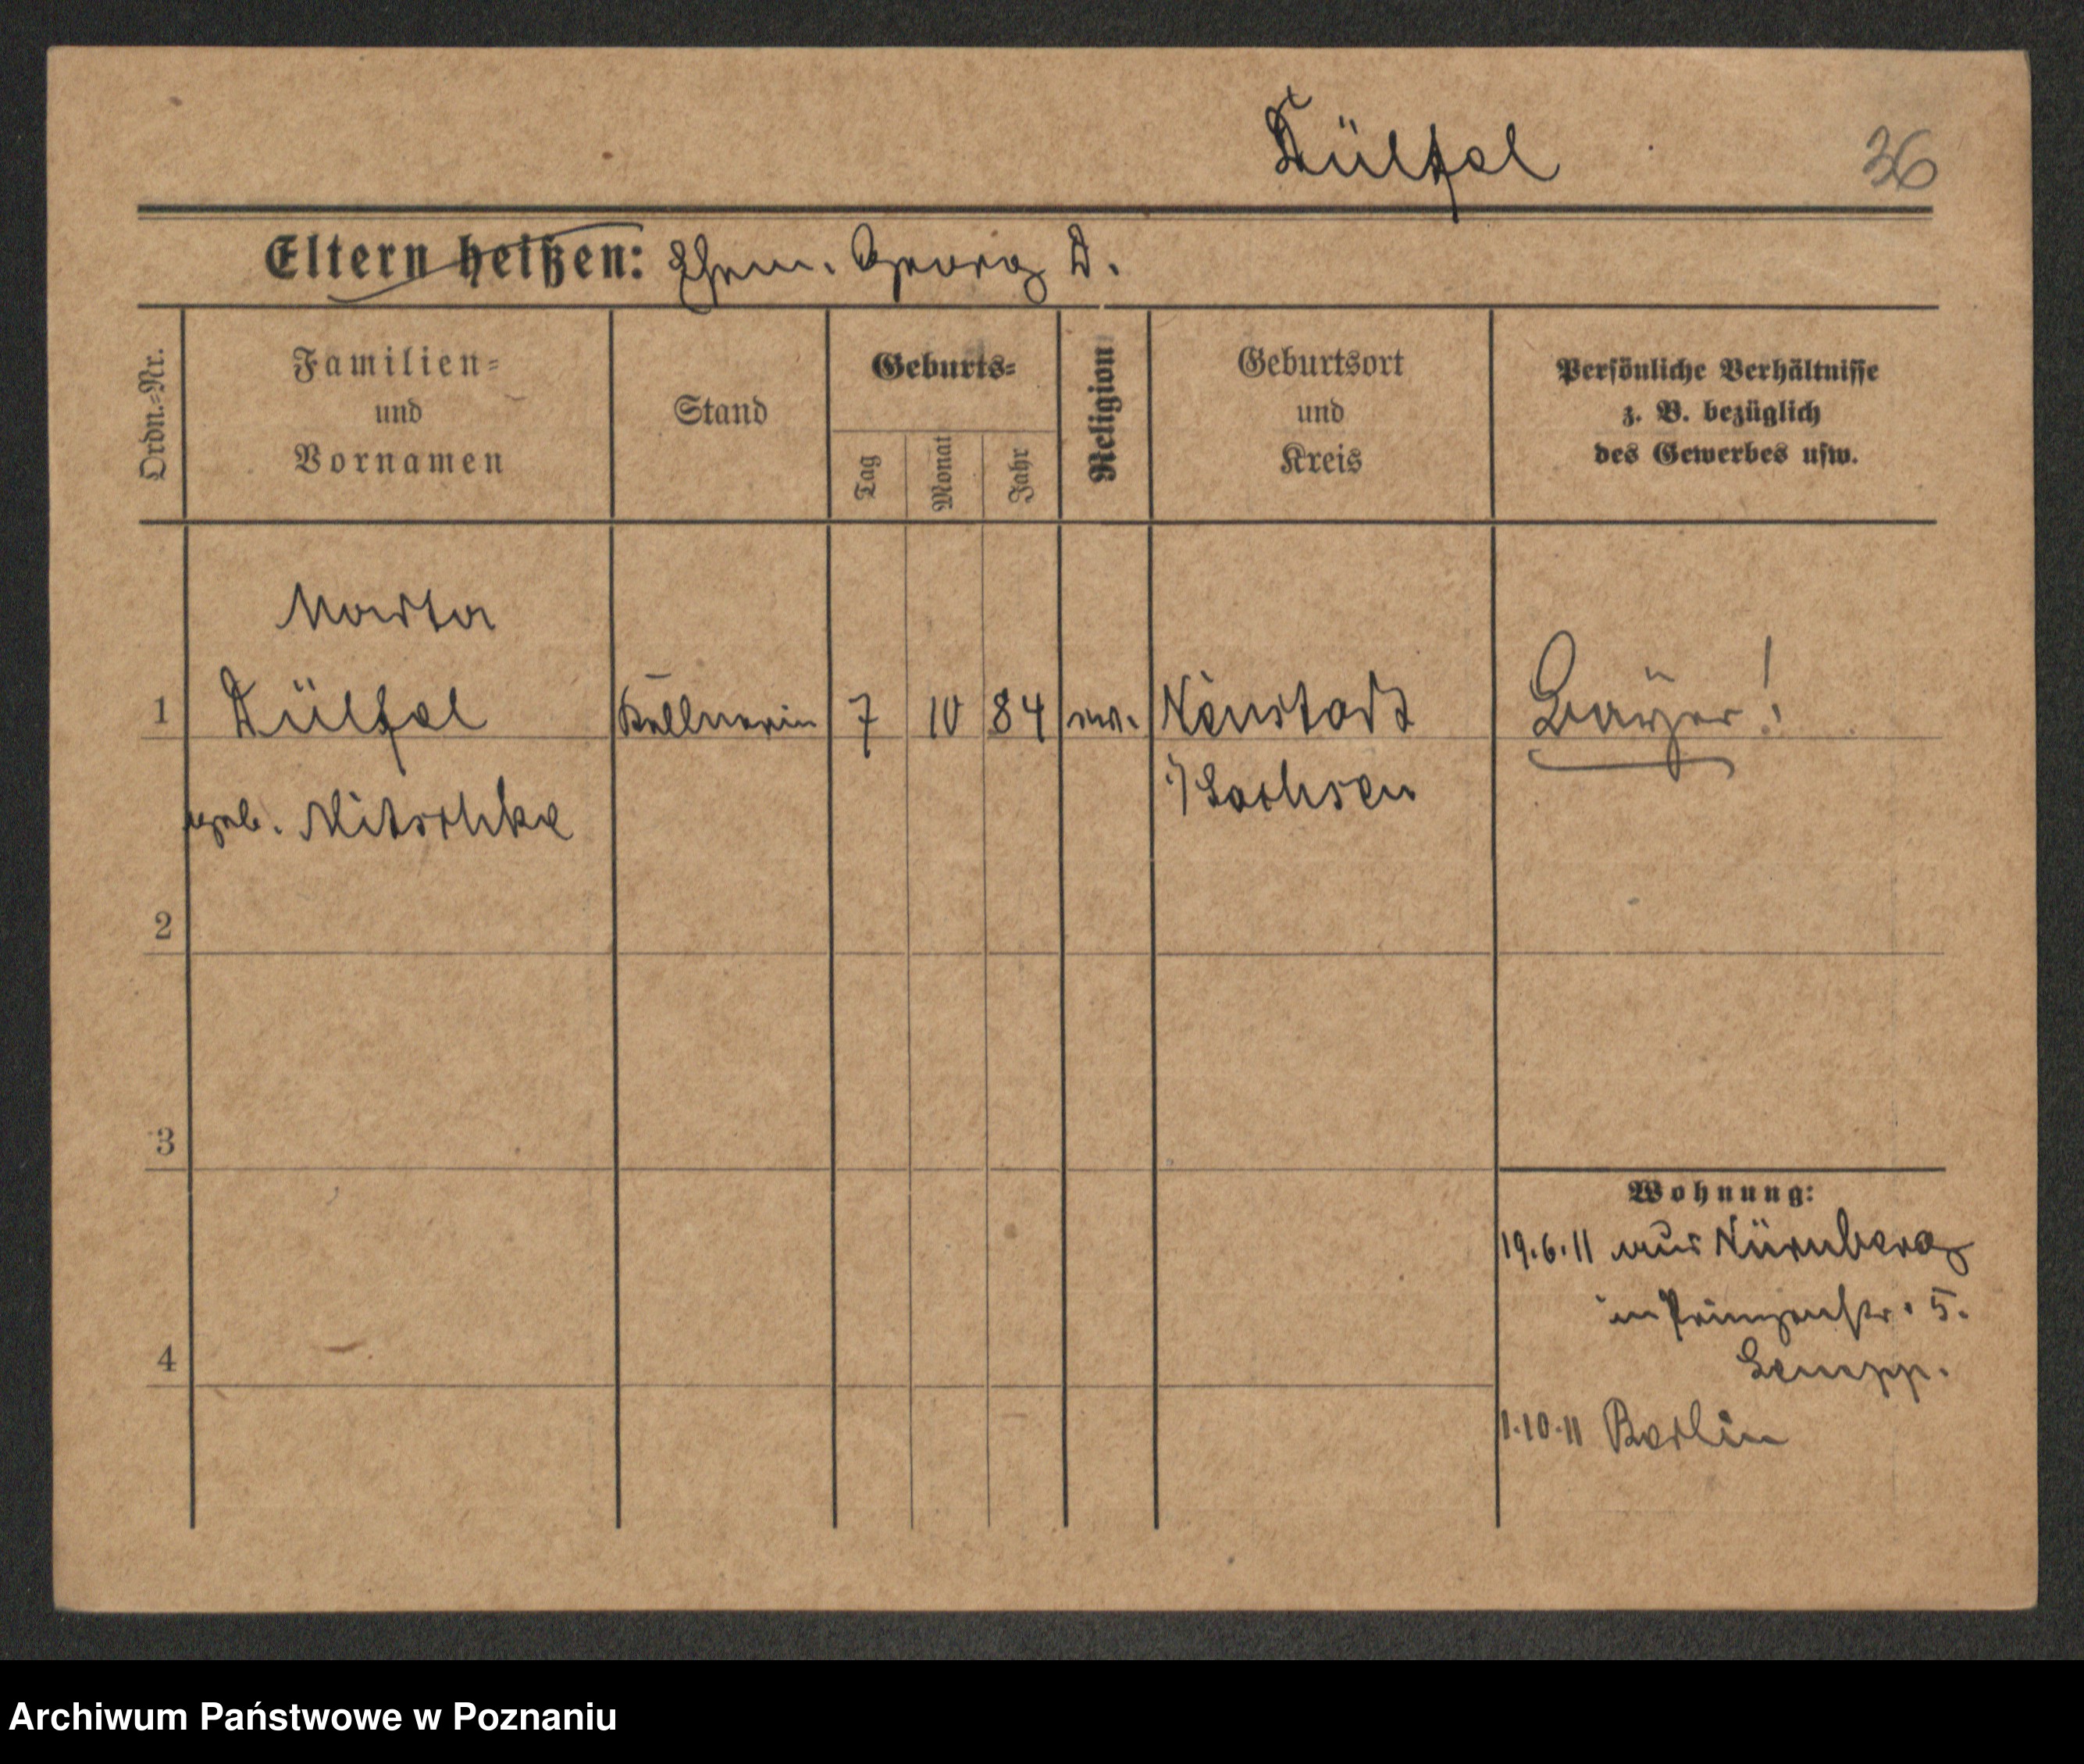 Dülfel
36
Eltern heißen: Ehem. Georg D.
Ordn.-Nr.
Familien-
und
Vornamen
Stand
Geburts-
Tag
Monat
Jahr
Religion
Geburtsort
und
Kreis
Persönliche Verhältnisse
z. B. bezüglich
des Gewerbes usw.
Marta
1 Dülfel Kellnerin 7 10 84 ev. Neustadt Bayer!
geb. Nitschke i/Sachsen
2
3
Wohnung:
19.6.11 aus Nürnberg
in Prinzenstr. 5.
4
1.10.11 Berlin
Archiwum Państwowe w Poznaniu